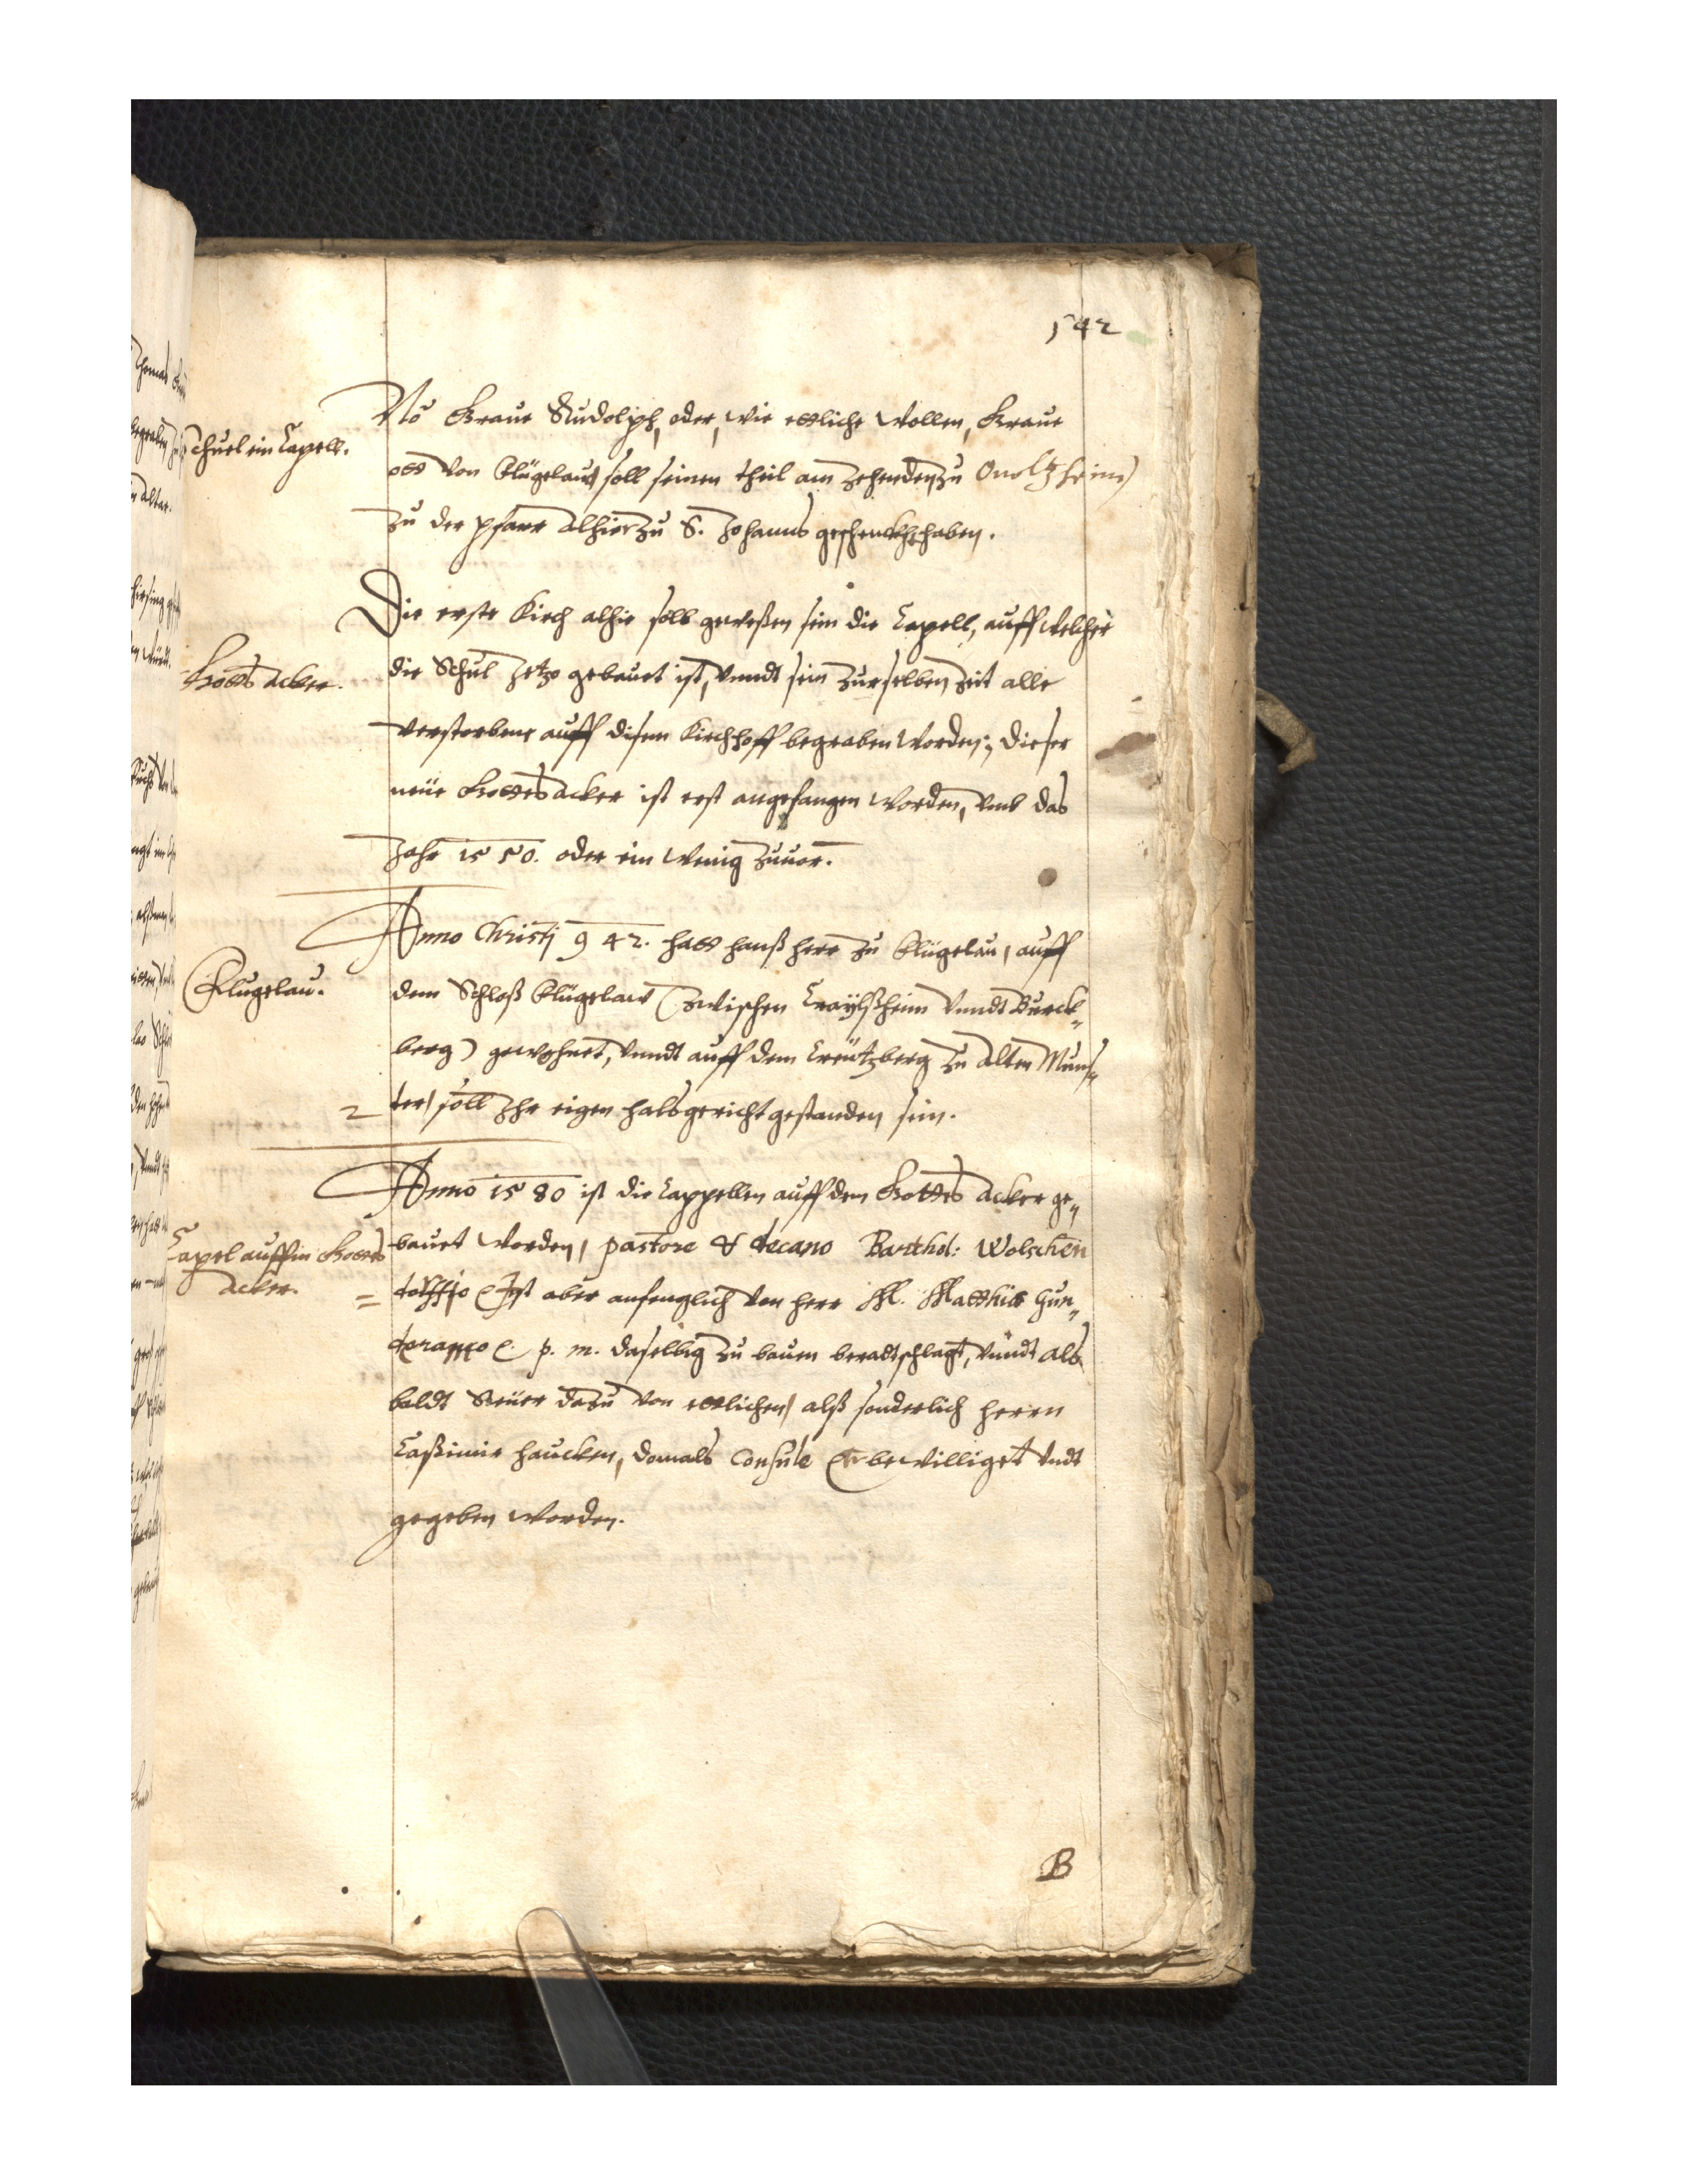 542
No Graue Rudolph, oder, wie etliche wollen, Graue
Schuel ein Capell.
ott von Flügelaw soll seinen theil am Zehenden zu Onoltzheim
zu der pfarr alhier zu S. Johanns geschenckht haben.
Die erste Kirch alhie soll geweßen sein die Capell, auff welcher
Gotts acker.
die Schul Jetzo gebauet ist, vnndt sein zur selben Zeit alle
verstorbene auff disem Kirchhoff begraben worden; dieser
neüe Gottes acker ist erst angefangen worden, vmb das
Jahr 1550. oder ein wenig zuuor.
Anno Christi 942. hatt hanß herr zu Flügelau, auff
Flugelau.
dem Schloß Flügelaw (zwischen Craÿlßheim vnndt Burck„
berg) gewohnet, vnndt auff dem Creützberg zu alten Muns„
ter, soll Ihr eigen halsgericht gestanden sein.
Anno 1580 ist die Cappellen auff dem Gottes acker ge„
Capel auffm Gottes
acker.
bauet worden, pastore & decano Barthol: Wolschen
dorffio Ist aber anfenglich von herr M. Matthia Gun„
deramo p. m. daselbig zu bauen beradtschlagt, vnndt als
baldt Steüer dazu von etlichen, alß sonderlich herrn
Caßimir haucken, domals Consule bewilliget vndt
gegeben worden.
B